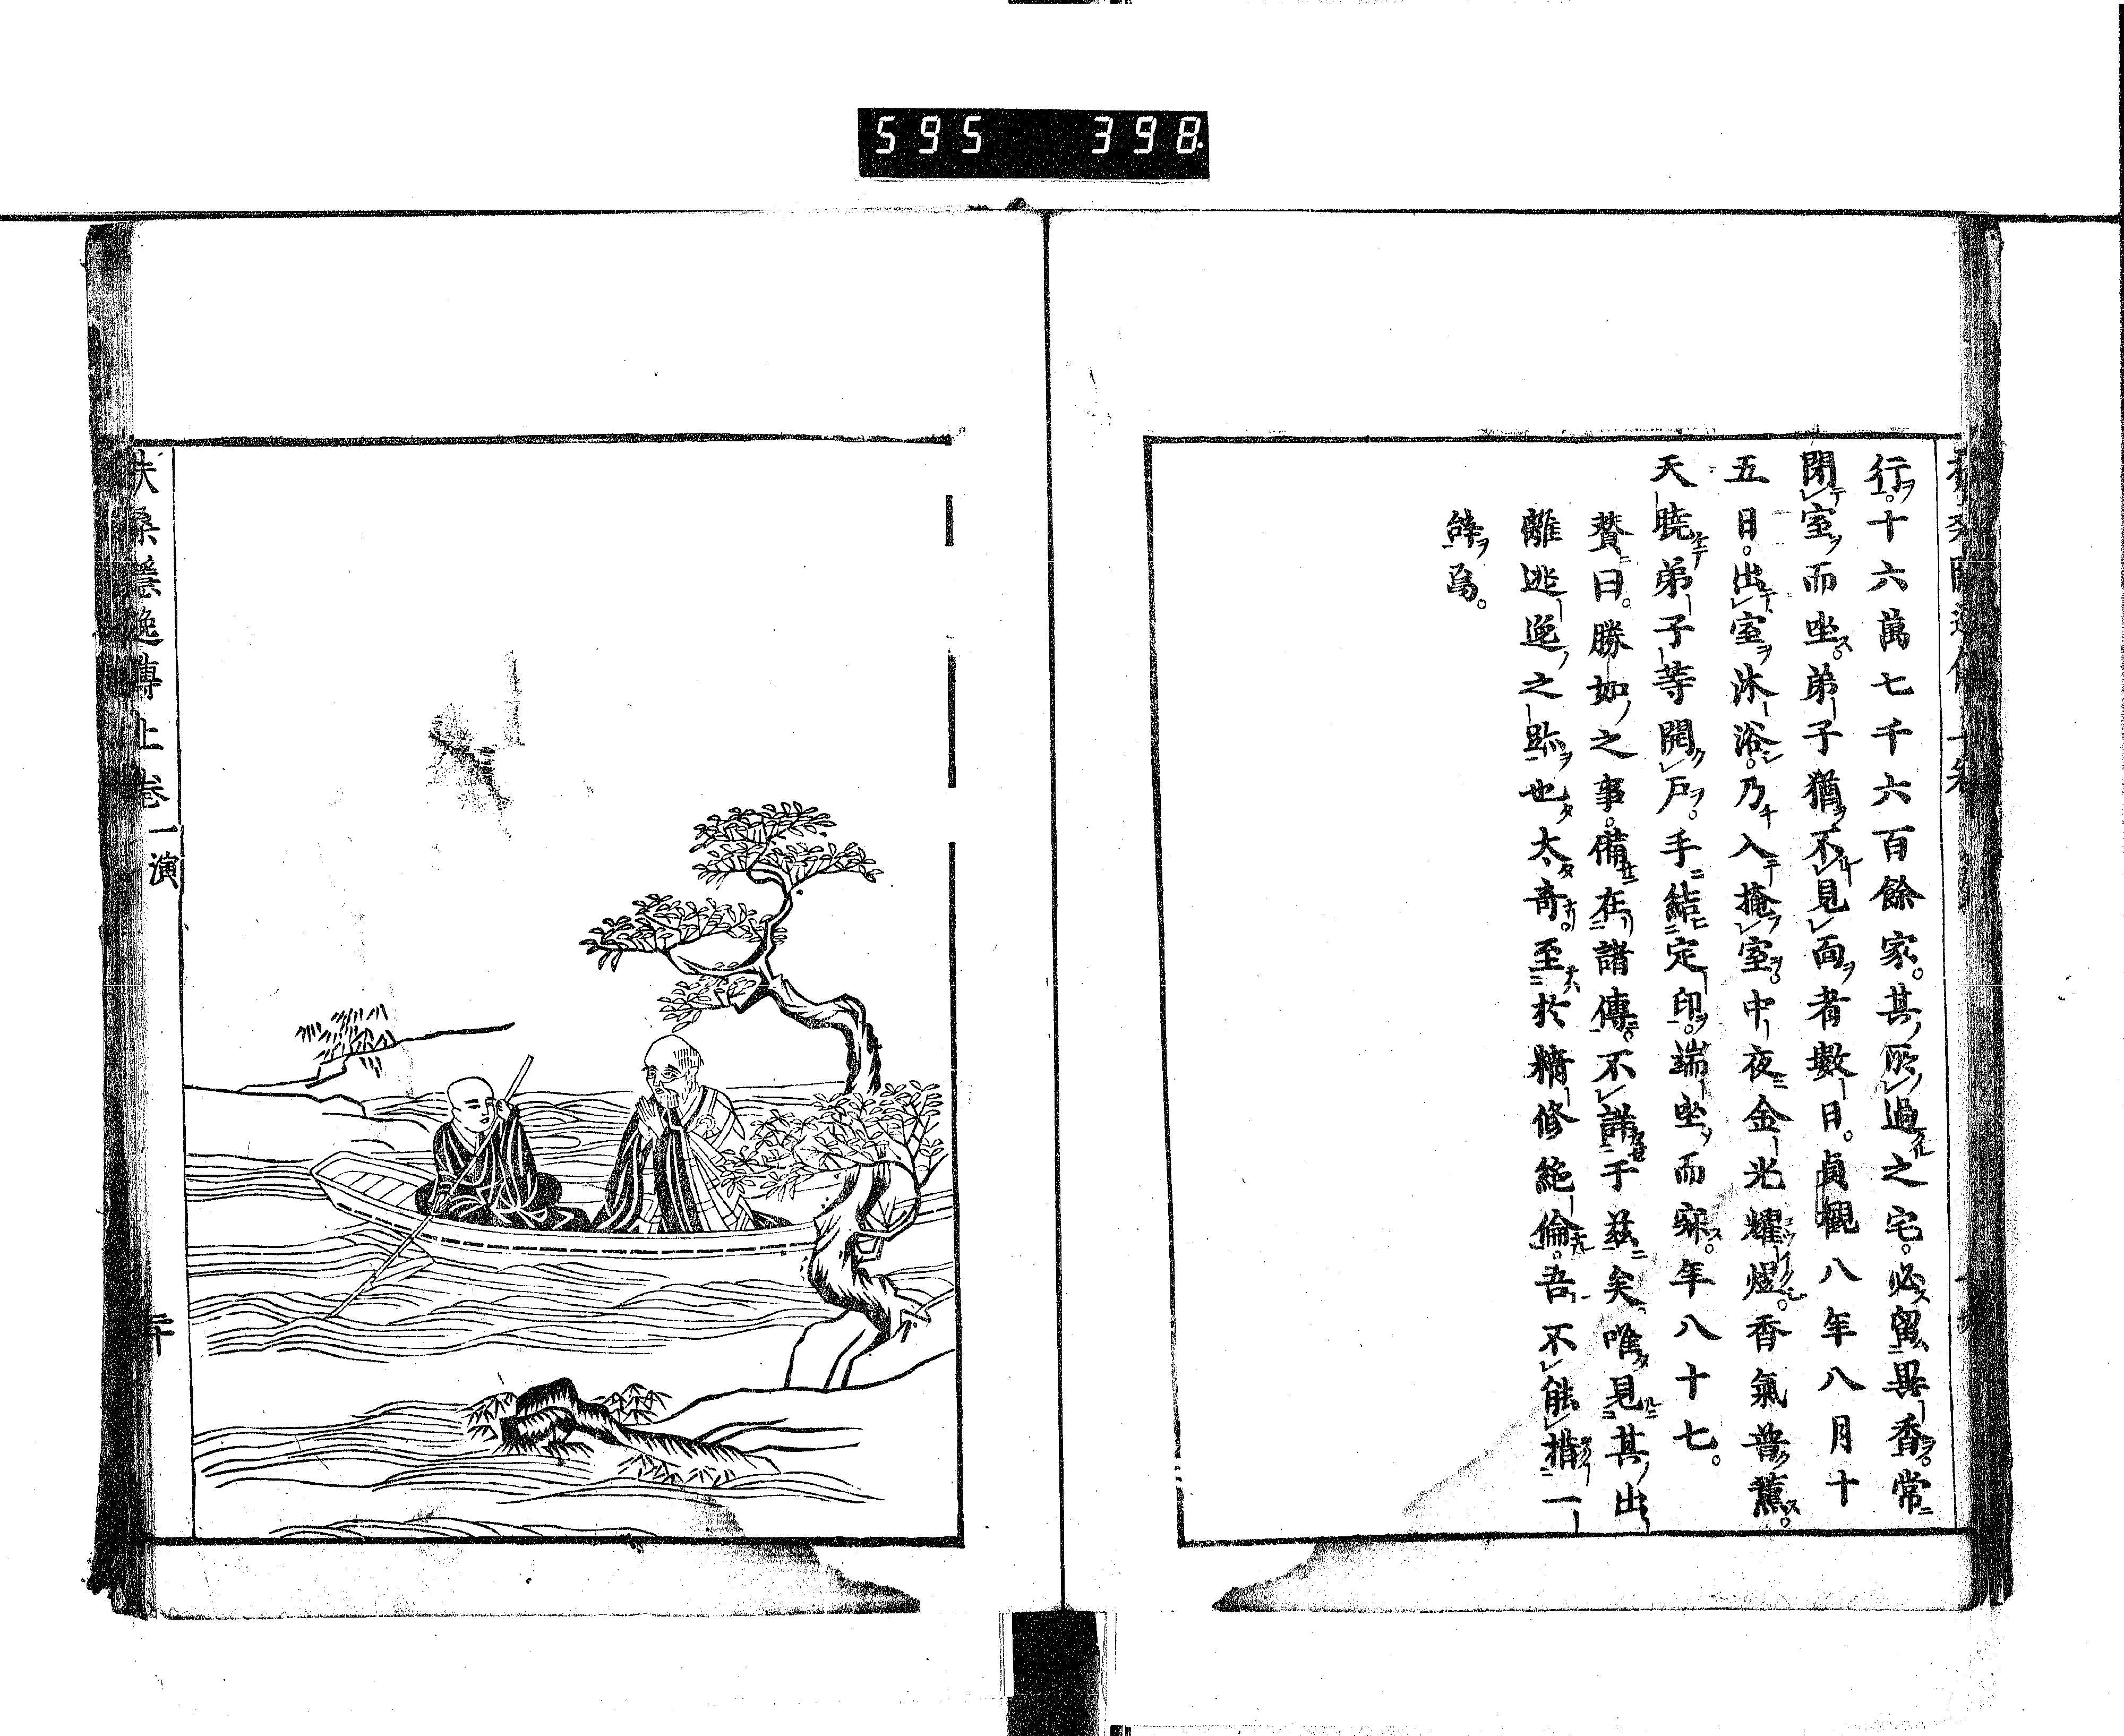 595 398
行十六萬七千六百餘家。其所過之宅。必留異香。常
閉室而坐。弟子猶不見面者數日。貞觀八年八月十
五日。出室沐浴。乃入掩室。中夜金光耀煜。香氣普薰。
天曉弟子等開戸。手結定印。端坐而寂。年八十七。
贊曰。勝如之事。備在諸傳。不詳于茲矣。唯見其出
離逃遁之跡也太奇。至於精修絶倫。吾不能措一
辭焉。
扶桑隱逸傳上卷 一演 二十